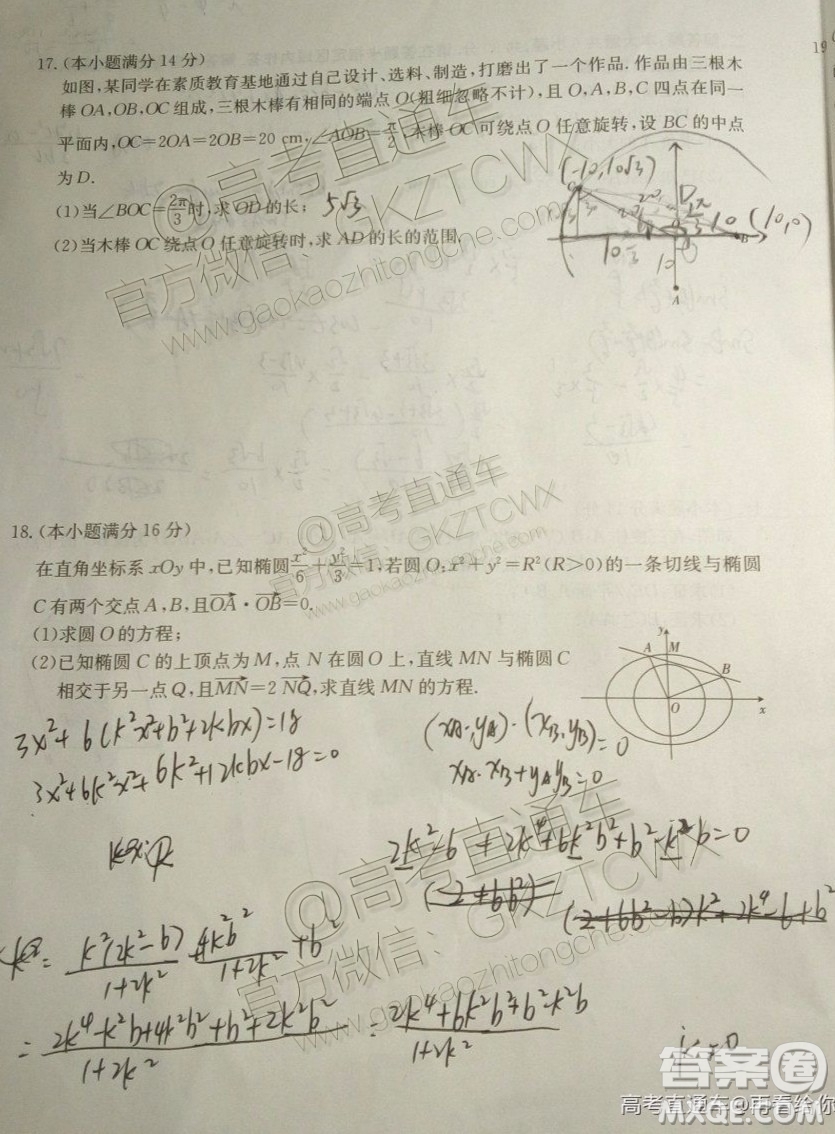 17.(本小题满分14分)
如图,某同学在素质教育基地通过自己设计、选料、制造,打磨出了一个作品.作品由三根木
棒OA,OB,OC组成,三根木棒有相同的端点O(粗细忽略不计),且O,A,B,C四点在同一
平面内,OC=2OA=2OB=20 cm,∠AOB=π/2,木棒OC可绕点O任意旋转,设BC的中点
为D.
(1)当∠BOC=2π/3时,求OD的长; 5√3
(2)当木棒OC绕点O任意旋转时,求AD的长的范围.
(-10,10√3)
D
10 (10,0)
10
10
B
A
19
@高考直通车
官方微信:GKZTCWX
www.gaokaozhitongche.com
18.(本小题满分16分)
在直角坐标系xOy中,已知椭圆x²/6+y²/3=1,若圆O:x²+y²=R²(R>0)的一条切线与椭圆
C有两个交点A,B,且OA·OB=0.
(1)求圆O的方程;
(2)已知椭圆C的上顶点为M,点N在圆O上,直线MN与椭圆C
相交于另一点Q,且MN=2NQ,求直线MN的方程.
y
A M
B
O
x
3x²+6(k²x²+b²+2kbx)=18
3x²+6k²x²+6k²+12kbx-18=0
(xA,yA)·(xB,yB)=0
xA·xB+yAyB=0
2k²-6+2k⁴+6k²b²+b²-k²b=0
(2+6b²)=
(2+6b²-b)k²+2k⁴-6+b²
k²(2k²-b)/1+2k² 4k²b²/1+2k² +b²
=2k⁴-k²b+4k²b²+b²+2k²b²/1+2k² =2k⁴+6k²b²+b²-k²b/1+2k²
@高考直通车
官方微信:GKZTCWX
www.gaokaozhitongche.com
@高考直通车
官方微信:GKZTCWX
www.gaokaozhitongche.com
答案圈
高考直通车@再看给你